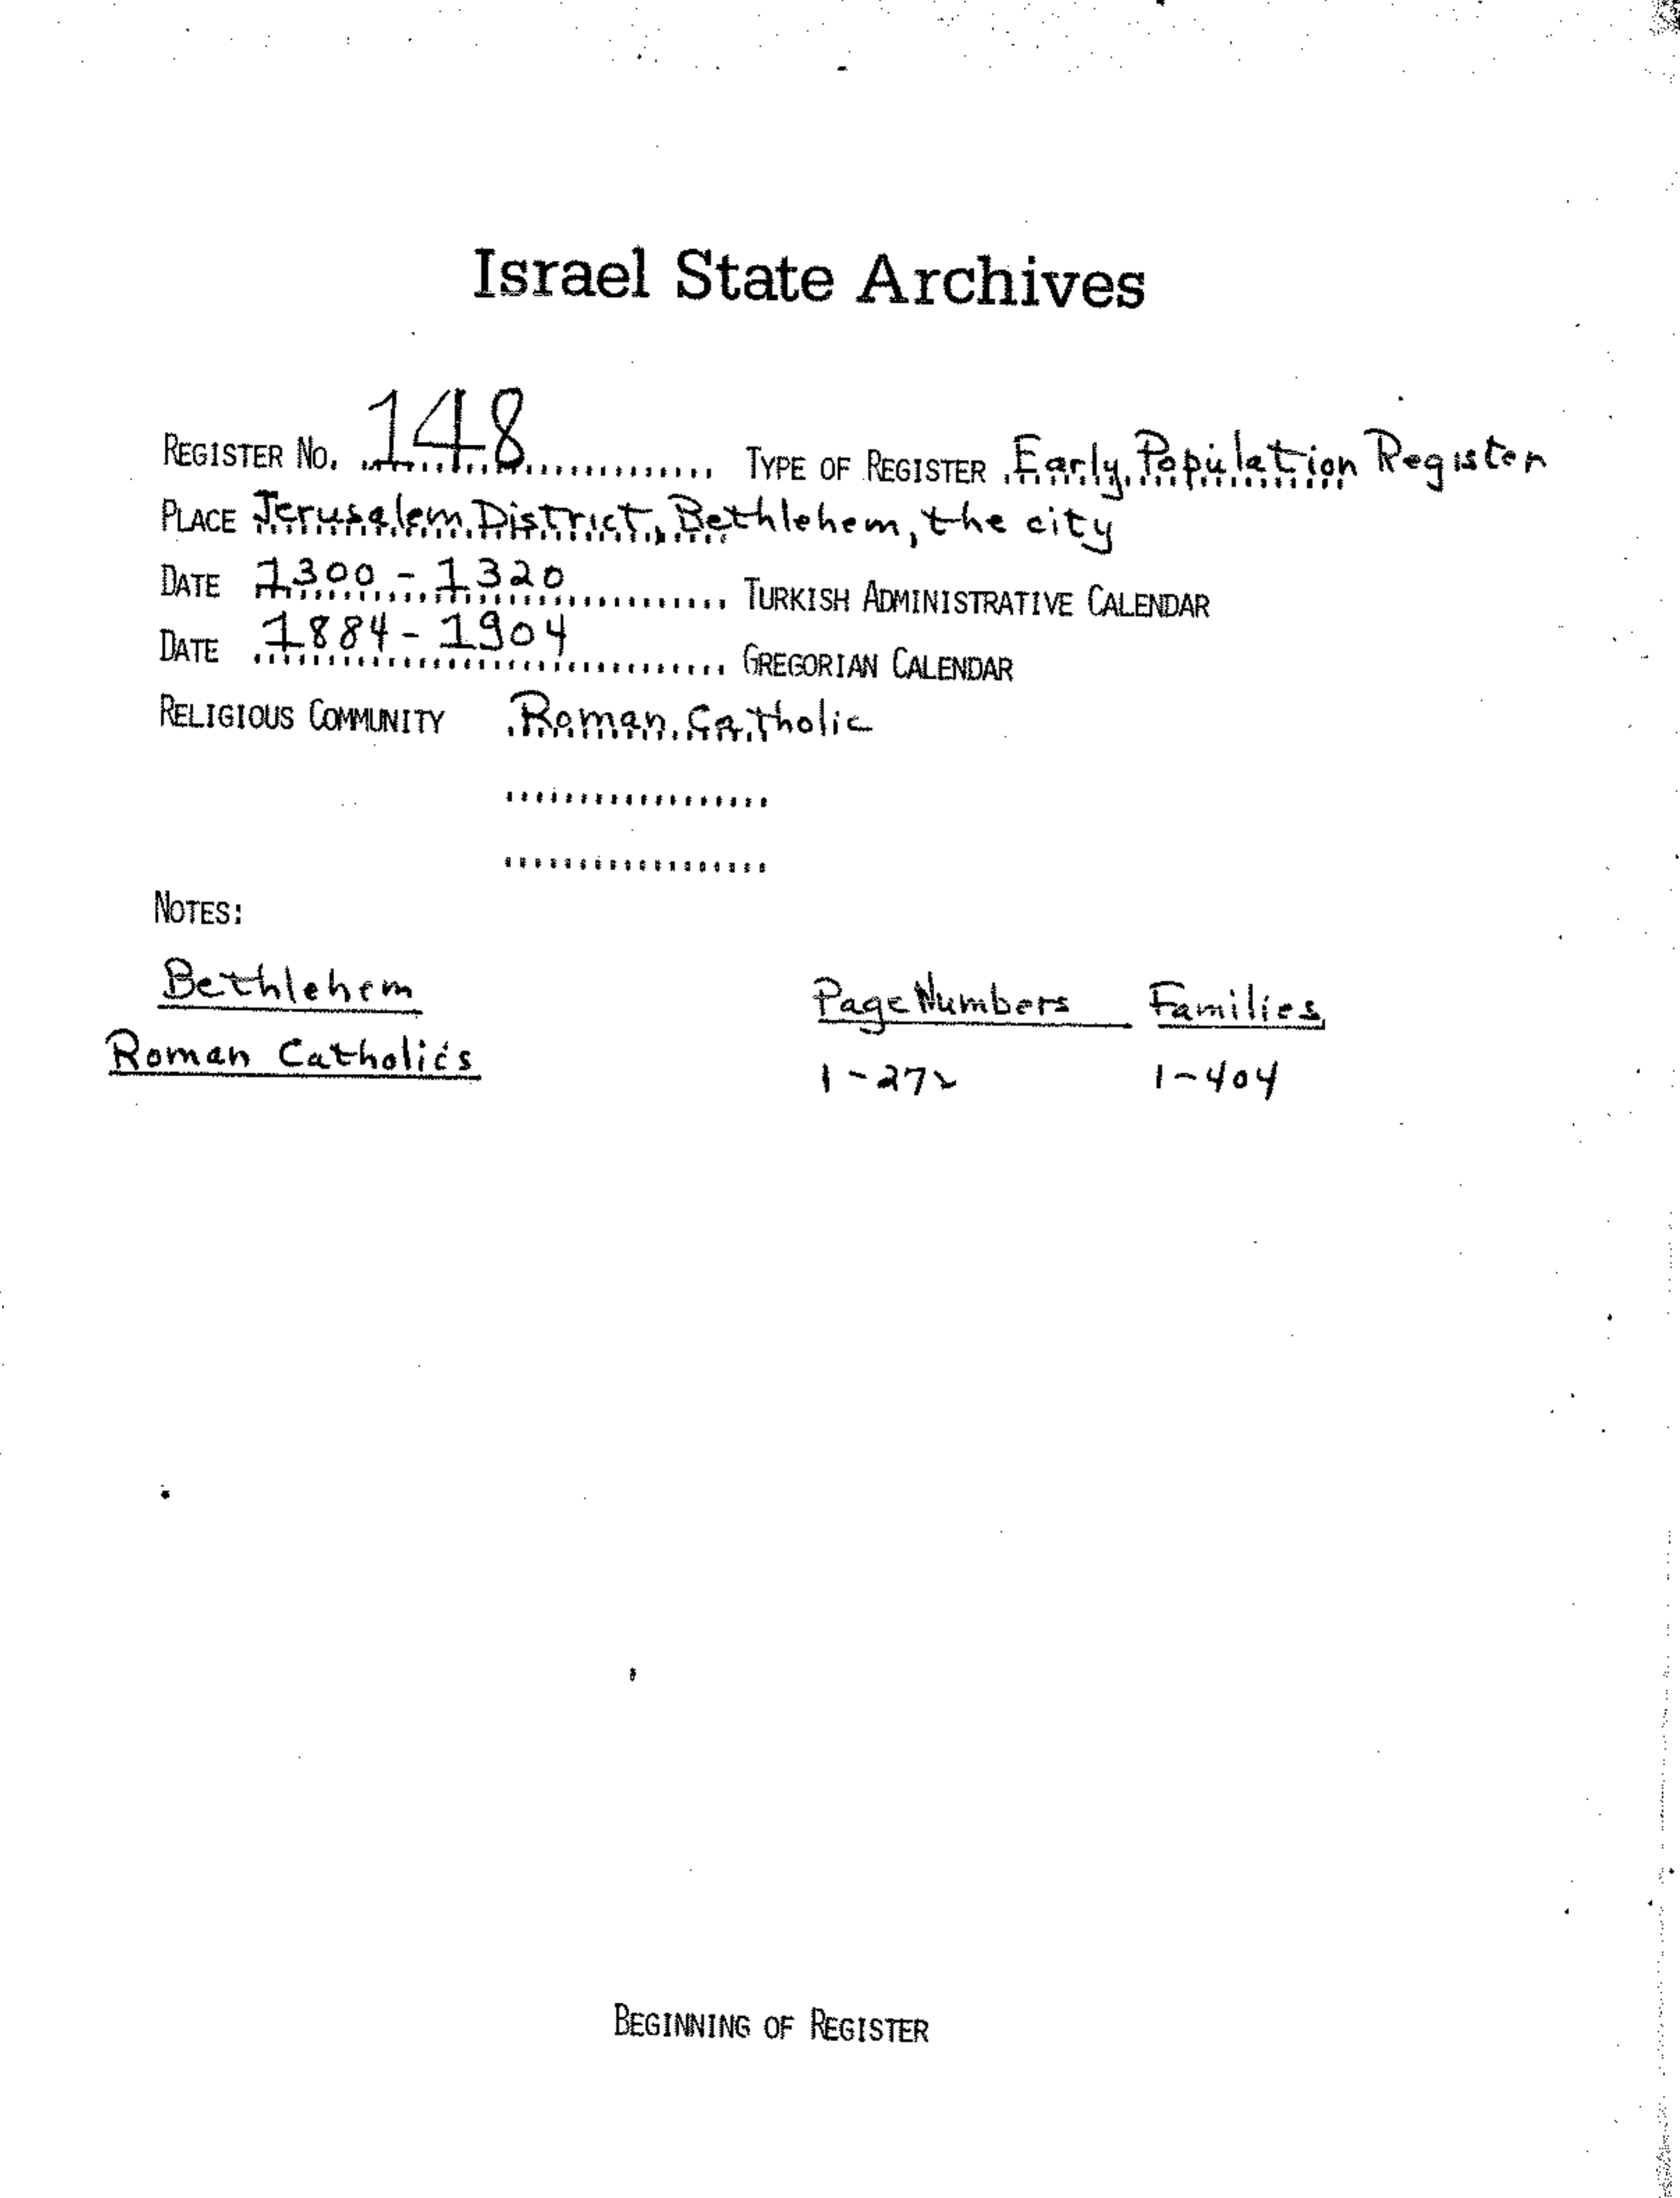 Israel State Archives
REGISTER NO. 148 TYPE OF REGISTER Early Population Register
PLACE Jerusalem District, Bethlehem, the city
DATE 1300 - 1320 TURKISH ADMINISTRATIVE CALENDAR
DATE 1884 - 1904 GREGORIAN CALENDAR
RELIGIOUS COMMUNITY Roman Catholic
NOTES:
Bethlehem Page Numbers Families
Roman Catholics 1-272 1-404
BEGINNING OF REGISTER